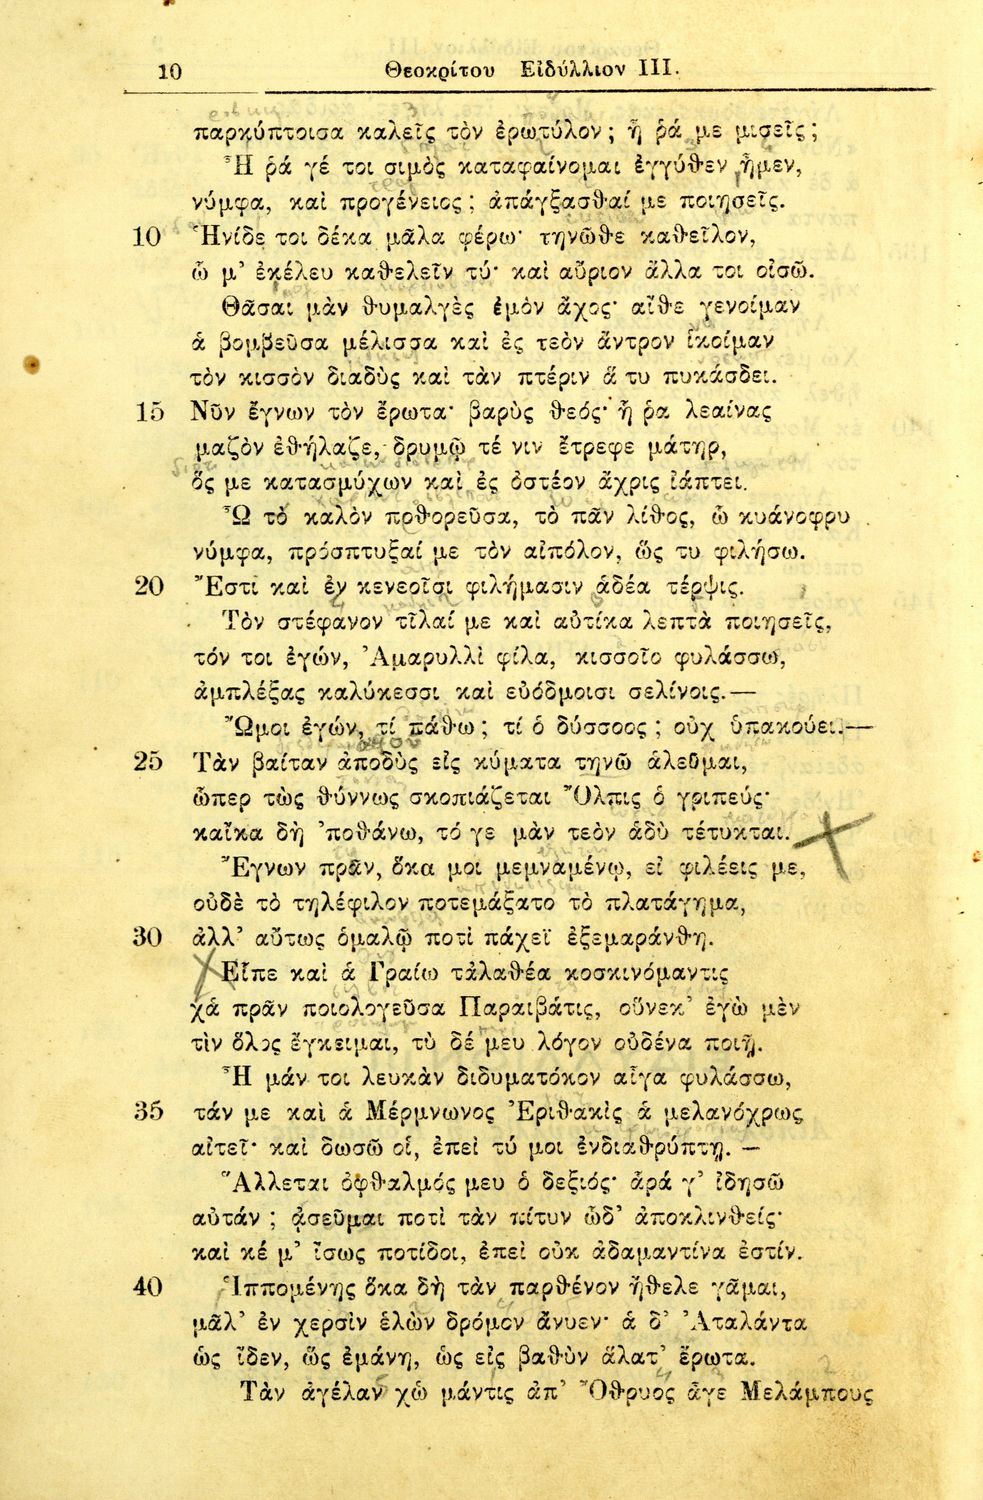 10 Θεοκρίτου Εἰδύλλιον III.
παρκύπτοισα καλεῖς τὸν ἐρωτύλον; ἦ ῥά με μισεῖς;
Ἦ ῥά γέ τοι σιμὸς καταφαίνομαι ἐγγύθεν ἦμεν,
νύμφα, καὶ προγένειος; ἀπάγξασθαί με ποιησεῖς.
10 Ἠνίδε τοι δέκα μᾶλα φέρω· τηνῶθε καθεῖλον,
ὧ μ’ ἐκέλευ καθελεῖν τύ· καὶ αὔριον ἄλλα τοι οἰσῶ.
Θᾶσαι μὰν θυμαλγὲς ἐμὸν ἄχος· αἴθε γενοίμαν
ἁ βομβεῦσα μέλισσα καὶ ἐς τεὸν ἄντρον ἱκοίμαν
τὸν κισσὸν διαδὺς καὶ τὰν πτέριν ᾇ τυ πυκάσδει.
15 Νῦν ἔγνων τὸν ἔρωτα· βαρὺς θεός· ἦ ῥα λεαίνας
μαζὸν ἐθήλαζε, δρυμῷ τέ νιν ἔτρεφε μάτηρ,
ὅς με κατασμύχων καὶ ἐς ὀστέον ἄχρις ἰάπτει.
Ὦ τὸ καλὸν ποθορεῦσα, τὸ πᾶν λίθος, ὦ κυάνοφρυ
νύμφα, πρόσπτυξαί με τὸν αἰπόλον, ὥς τυ φιλήσω.
20 Ἔστι καὶ ἐν κενεοῖσι φιλήμασιν ἁδέα τέρψις.
Τὸν στέφανον τῖλαί με καὶ αὐτίκα λεπτὰ ποιησεῖς,
τόν τοι ἐγών, Ἀμαρυλλὶ φίλα, κισσοῖο φυλάσσω,
ἀμπλέξας καλύκεσσι καὶ εὐόδμοισι σελίνοις.—
Ὤμοι ἐγών, τί πάθω; τί ὁ δύσσοος; οὐχ ὑπακούει.—
25 Τὰν βαίταν ἀποδὺς εἰς κύματα τηνῶ ἁλεῦμαι,
ὧπερ τὼς θύννως σκοπιάζεται Ὄλπις ὁ γριπεύς·
καἴκα δὴ ’ποθάνω, τό γε μὰν τεὸν ἁδὺ τέτυκται.
Ἔγνων πρᾶν, ὅκα μοι μεμναμένῳ, εἰ φιλέεις με,
οὐδὲ τὸ τηλέφιλον ποτεμάξατο τὸ πλατάγημα,
30 ἀλλ’ αὔτως ὁμαλῷ ποτὶ πάχεϊ ἐξεμαράνθη.
Εἶπε καὶ ἁ Γραίω τἀλαθέα κοσκινόμαντις
χἁ πρᾶν ποιολογεῦσα Παραιβάτις, οὕνεκ’ ἐγὼ μὲν
τὶν ὅλος ἔγκειμαι, τὺ δέ μευ λόγον οὐδένα ποιῇ.
Ἦ μάν τοι λευκὰν διδυματόκον αἶγα φυλάσσω,
35 τάν με καὶ ἁ Μέρμνωνος Ἐριθακὶς ἁ μελανόχρως
αἰτεῖ· καὶ δωσῶ οἱ, ἐπεὶ τύ μοι ἐνδιαθρύπτῃ. —
Ἅλλεται ὀφθαλμός μευ ὁ δεξιός· ἆρά γ’ ἰδησῶ
αὐτάν; ᾀσεῦμαι ποτὶ τὰν πίτυν ὧδ’ ἀποκλινθείς·
καὶ κέ μ’ ἴσως ποτίδοι, ἐπεὶ οὐκ ἀδαμαντίνα ἐστίν.
40 Ἱππομένης ὅκα δὴ τὰν παρθένον ἤθελε γᾶμαι,
μᾶλ’ ἐν χερσὶν ἑλὼν δρόμον ἄνυεν· ἁ δ’ Ἀταλάντα
ὡς ἴδεν, ὣς ἐμάνη, ὡς εἰς βαθὺν ἅλατ’ ἔρωτα.
Τὰν ἀγέλαν χὠ μάντις ἀπ’ Ὄθρυος ἆγε Μελάμπους